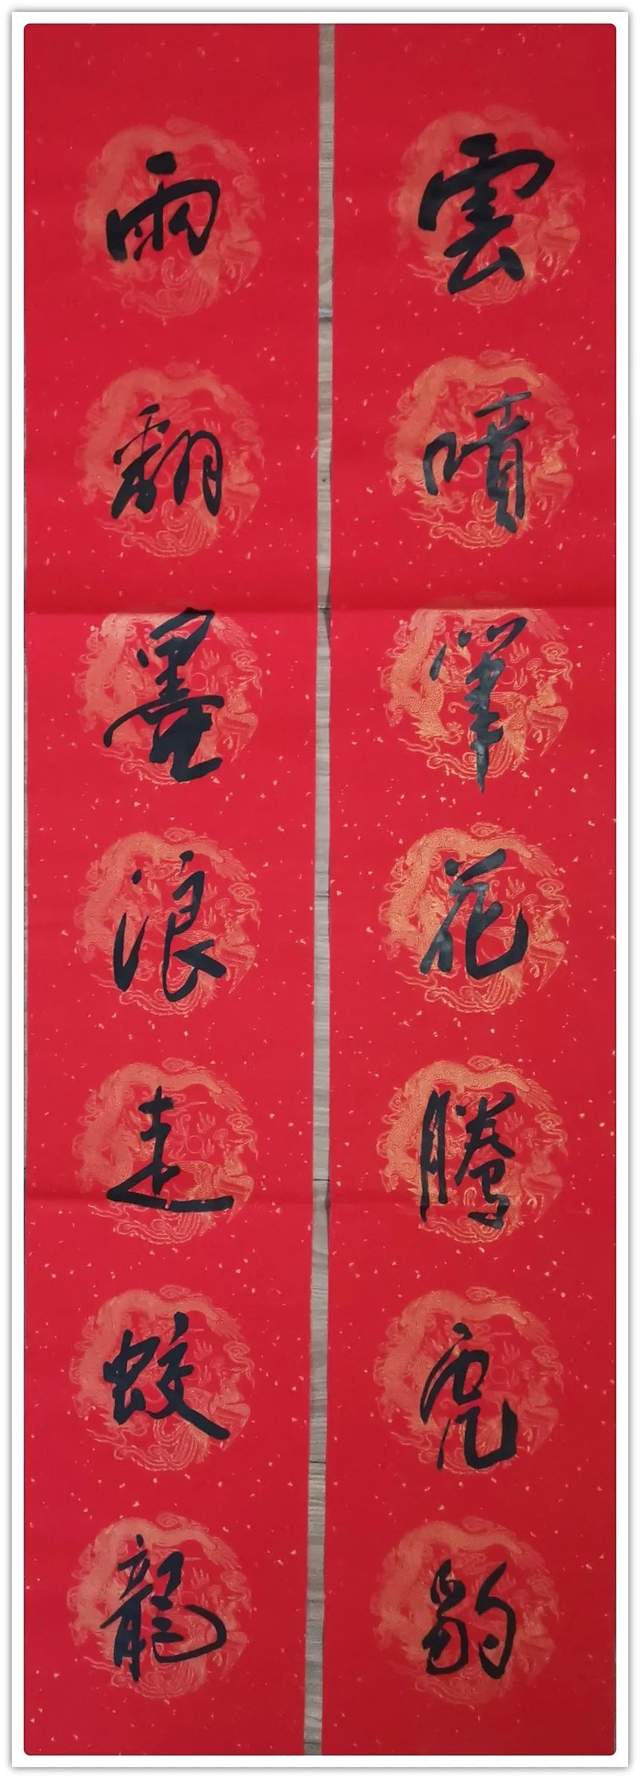 雲噴筆花騰虎豹
雨翻墨浪走蛟龍